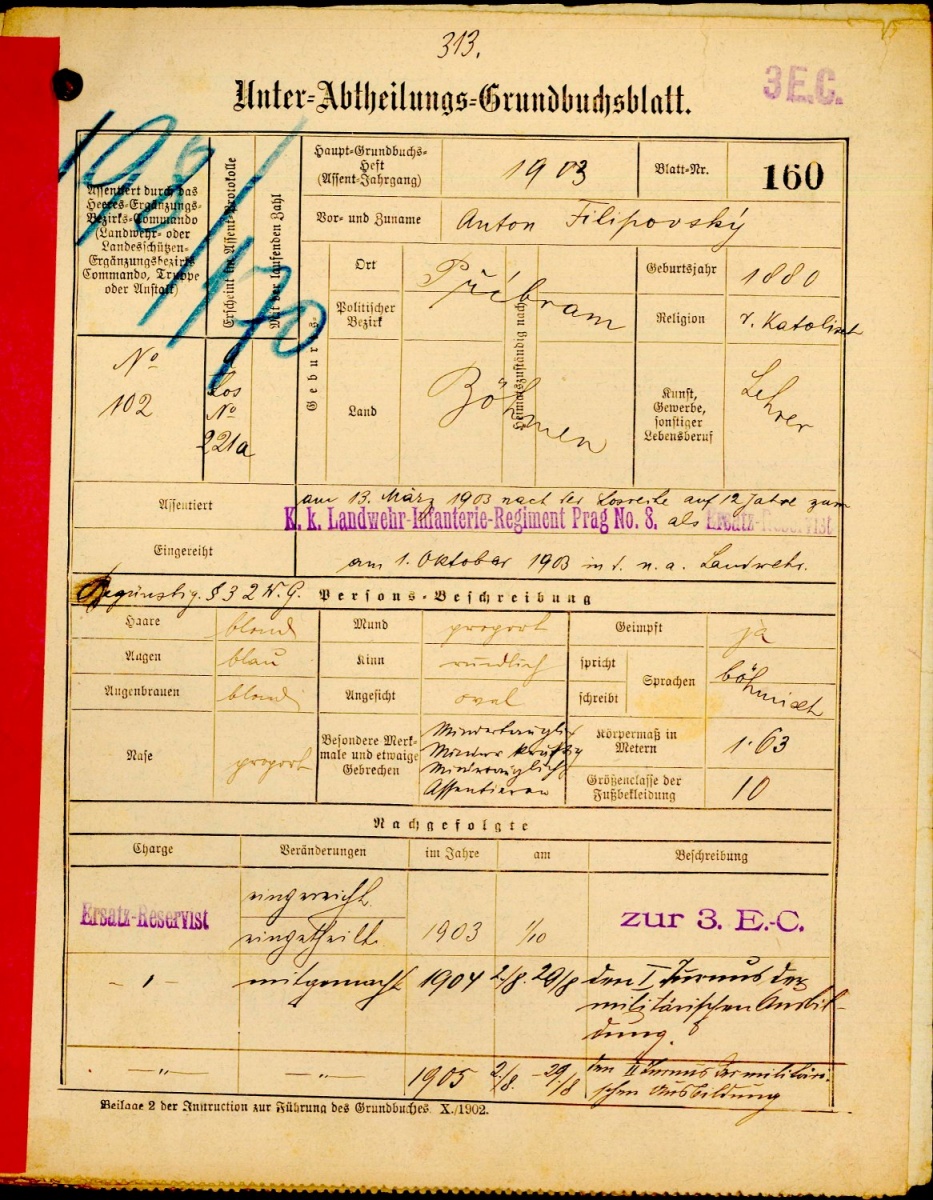 313.
3 E.C.
Unter-Abtheilungs-Grundbuchsblatt.
198/170
Assentiert durch das
Heeres-Ergänzungs-
Bezirks-Commando
(Landwehr- oder
Landesschützen-
Ergänzungsbezirks-
Commando, Truppe
oder Anstalt)
Erscheint im Assent-Protokolle
Mit der laufenden Zahl
No
102
Los
No
221a
Haupt-Grundbuchs-
Heft
(Assent-Jahrgang)
1903
Blatt-Nr.
160
Vor- und Zuname
Anton Filipovský
Geburts-
Ort
Politischer
Bezirk
Příbram
Land
Böhmen
Heimatszuständig nach
Geburtsjahr
1880
Religion
r. Katolisch
Kunst,
Gewerbe,
sonstiger
Lebensberuf
Lehrer
Assentiert
am 13. März 1903 nach der Losreihe auf 12 Jahre zum
K. k. Landwehr-Infanterie-Regiment Prag No. 8. als Ersatz-Reservist
Eingereiht
am 1. Oktober 1903 in d. n. a. Landwehr.
Begünstig. § 32 W. G.
Persons-Beschreibung
Haare
blond
Mund
proport
Geimpft
ja
Augen
blau
Kinn
rundlich
spricht
schreibt
Sprachen
böhmisch
Augenbrauen
blond
Angesicht
oval
Nase
proport
Besondere Merk-
male und etwaige
Gebrechen
Mindertauglich
Minder kräftig
Assentieren
Körpermaß in
Metern
1·63
Größenclasse der
Fußbekleidung
10
Nachgefolgte
Charge
Veränderungen
im Jahre
am
Beschreibung
Ersatz-Reservist
eingereiht
eingetheilt
1903
1/10
zur 3. E.-C.
- " -
mitgemacht
1904
2/8. 29/8
den I Turnus der
militärischen Ausbil-
dung.
- " -
- " -
1905
2/8. - 29/8
den II Turnus der militäri-
schen Ausbildung
Beilage 2 der Instruction zur Führung des Grundbuches. X./1902.